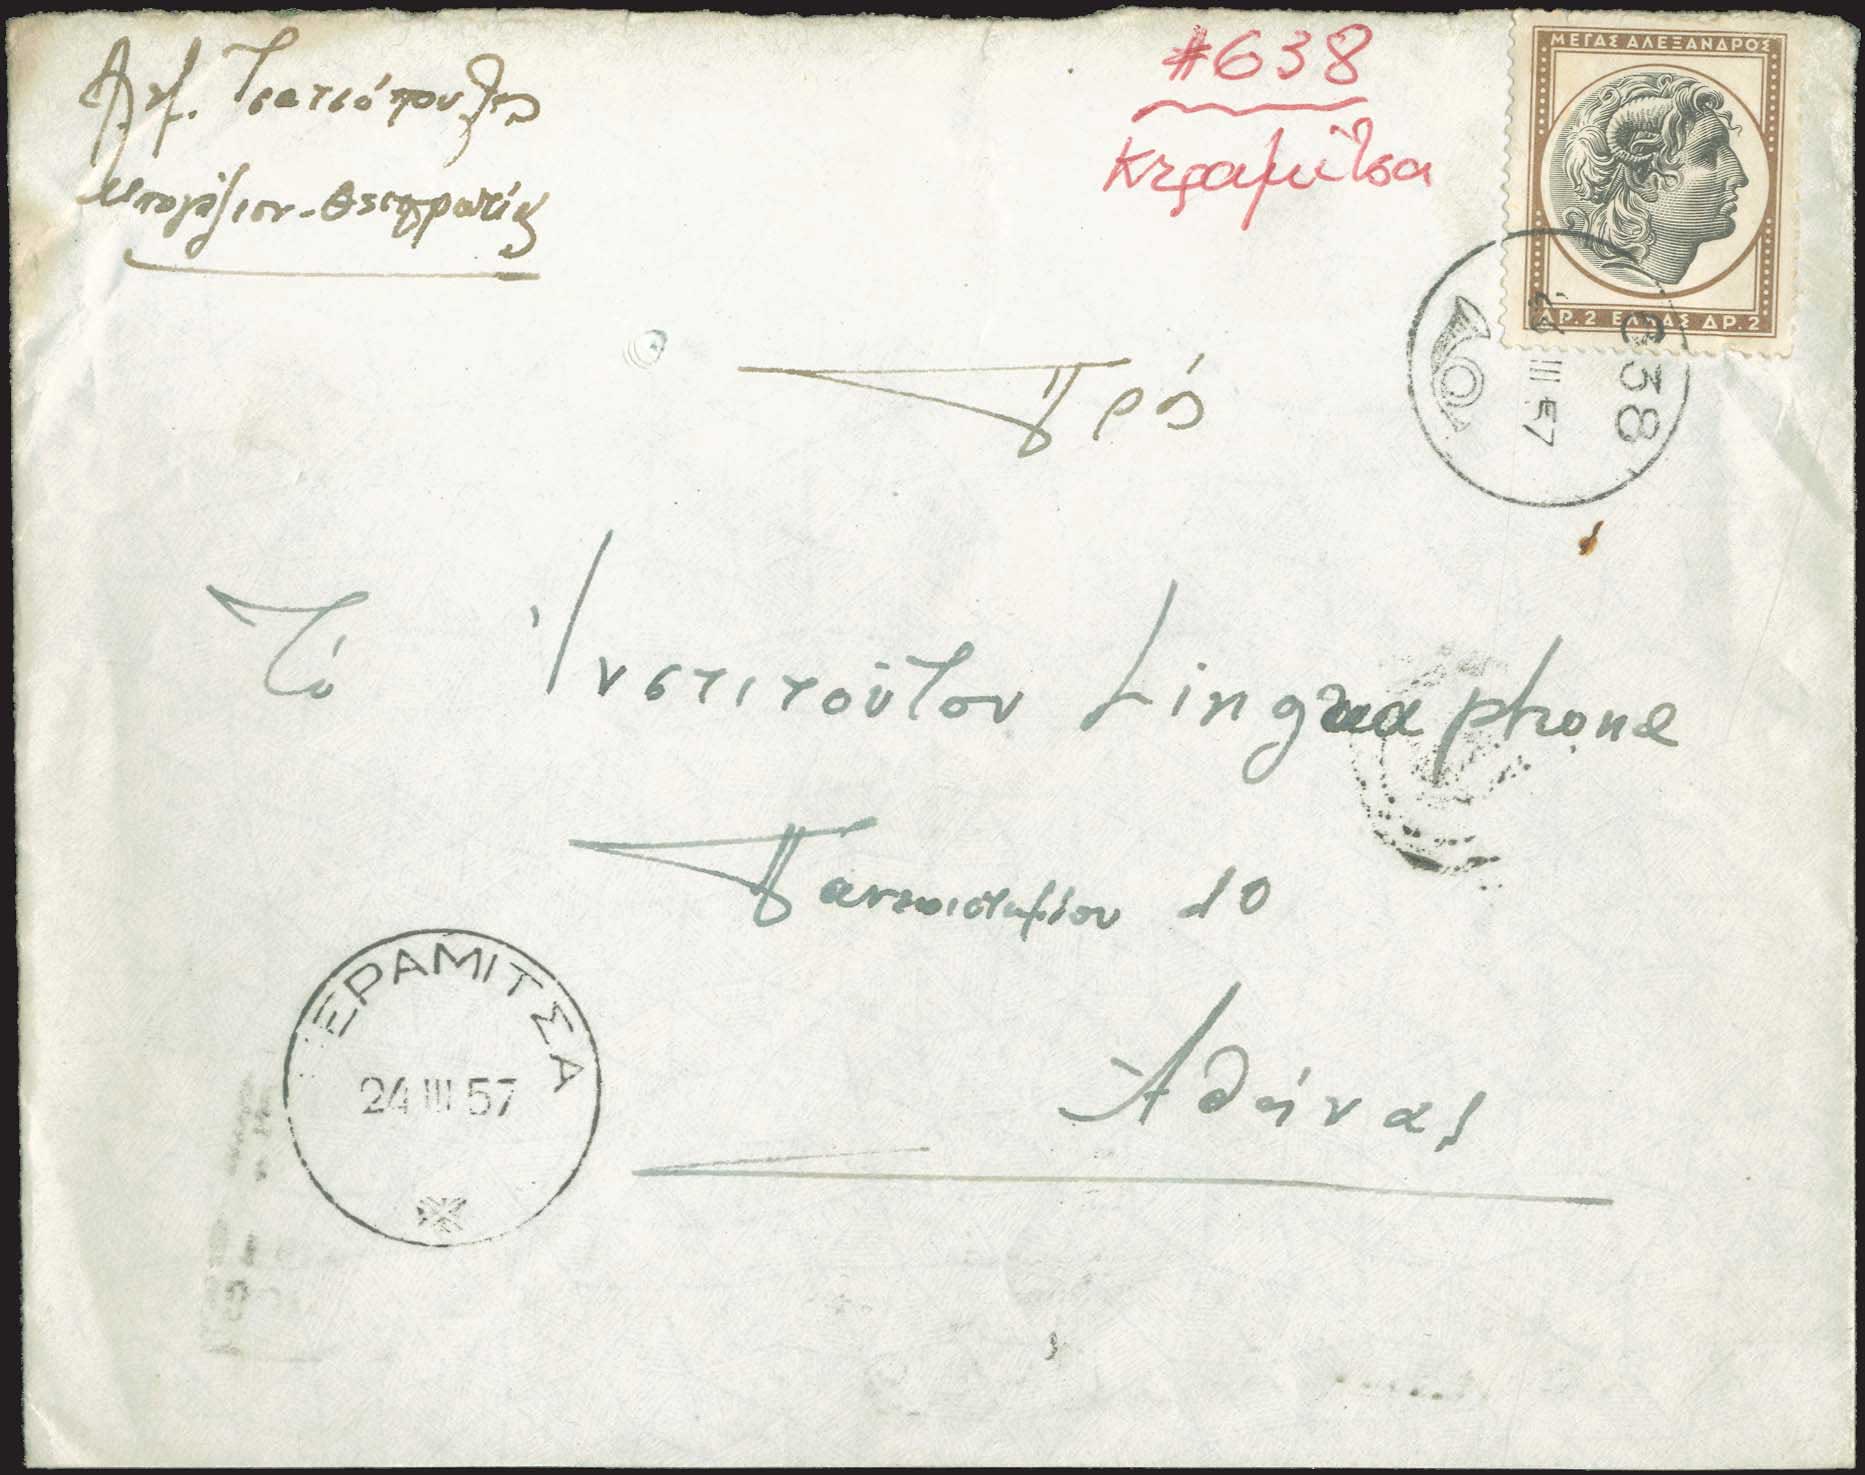 Δημ. Τσατσόπουλος
Θεσπρωτίας
#638
Κεραμίτσα
ΜΕΓΑΣ ΑΛΕΞΑΝΔΡΟΣ
ΔΡ.2 ΕΛΛΑΣ ΔΡ.2
638
III 57
Πρός
Τό Ἰνστιτοῦτον Linguaphone
Πανεπιστημίου 10
Αθήνας
ΕΡΑΜΙΤΣΑ
24 III 57